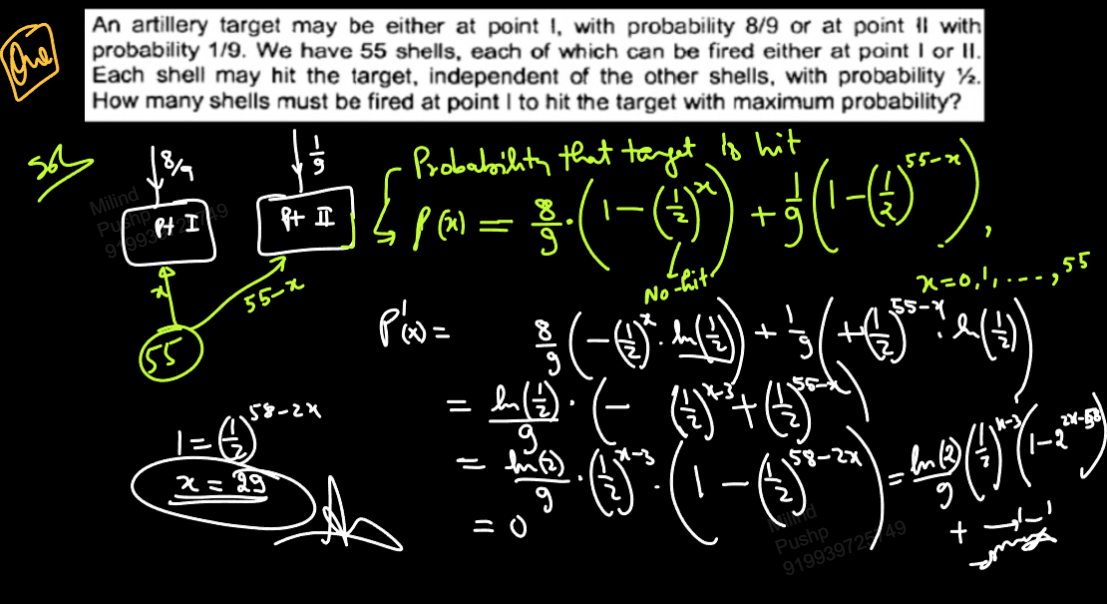 Que
An artillery target may be either at point I, with probability 8/9 or at point II with
probability 1/9. We have 55 shells, each of which can be fired either at point I or II.
Each shell may hit the target, independent of the other shells, with probability ½.
How many shells must be fired at point I to hit the target with maximum probability?
Sol
8/9
1/9
Pt I
Pt II
x
55-x
55
Probability that target is hit
P(x) = 8/9 · (1-(1/2)^x) + 1/9 (1-(1/2)^{55-x}),
No-hit
x=0,1,----,55
P'(x) = 8/9 (-(1/2)^x · ln(1/2)) + 1/9 (+(1/2)^{55-x} · ln(1/2))
= ln(1/2)/9 · (- (1/2)^{x-3} + (1/2)^{55-x})
= ln(2)/9 · (1/2)^{x-3} · (1 - (1/2)^{58-2x}) = ln(2)/9 (1/2)^{x-3} (1-2^{2x-58})
= 0
1 = (1/2)^{58-2x}
x = 29
Milind
Pushp
919939725749
Milind
Pushp
919939725749